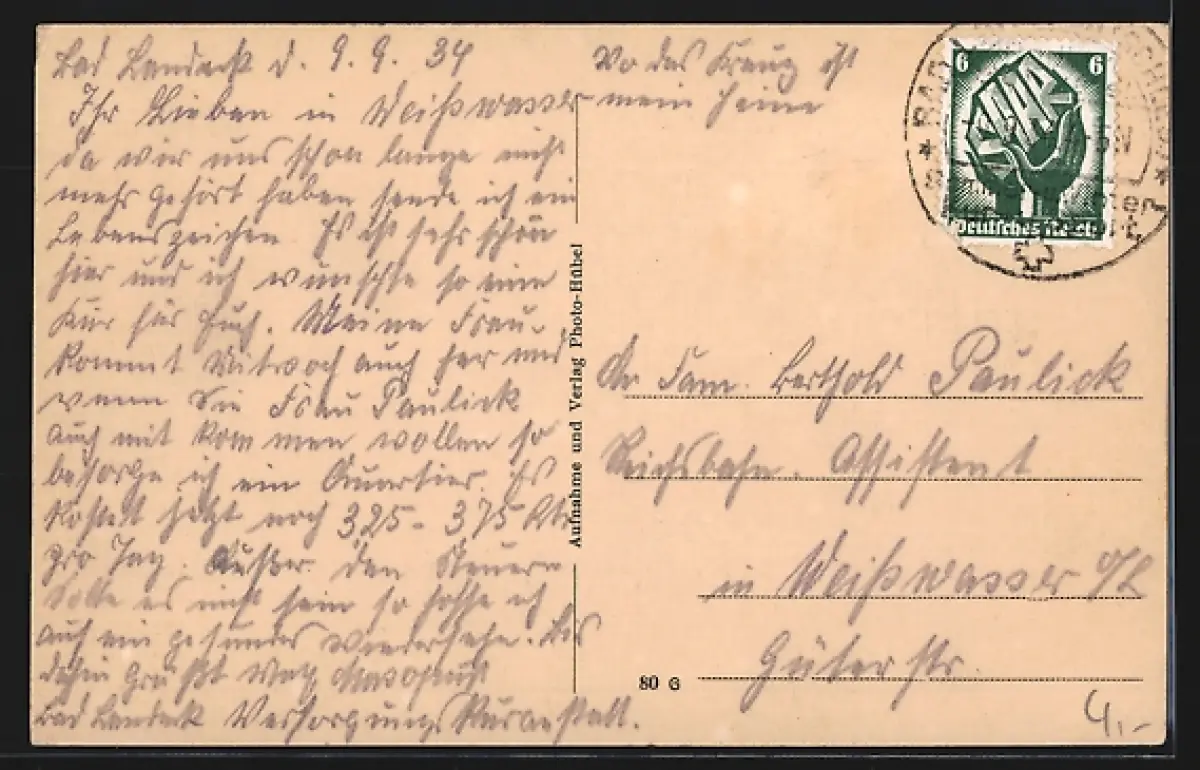 Bad Landeck d. 9 9 34
Ihr Lieben in Weißwasser
da wir uns schon lange nicht
mehr gehört haben sende ich ein
Lebenszeichen Es ist sehr schön
hier und ich wünschte so eine
Kur für Euch. Meine Frau
kommt Mitwoch auch her und
wenn Sie Frau Paulick
auch mit kommen wollen so
besorge ich ein Quartier. Es
kostet jetzt noch 3,25 - 3,75
pro Tag. Außer den Steuern
Solte es nicht sein so hoffe ich
auf ein gesundes wiedersehn. Bis
dahin Grüßt
Bad Landeck Versorgungs Kuranstalt.
Wo das Kreuz ist
mein Heim
6 6
SAAR
Deutsches Reich
BAD
Aufnahme und Verlag Photo-Hübel
Fam. Berthold Paulick
Reichsbahn. Assistent
in Weißwasser O/L
Güterstr.
80 G
4,-